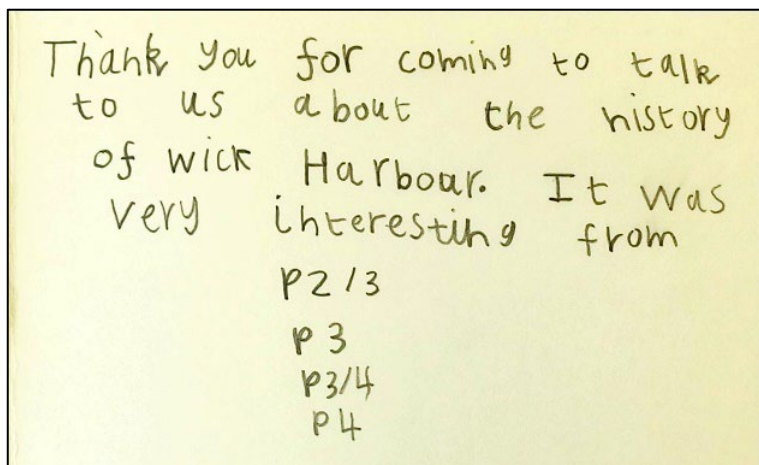 Thank you for coming to talk
to us about the history
of wick Harbour. It was
very interesting from
P2/3
P3
P3/4
P4